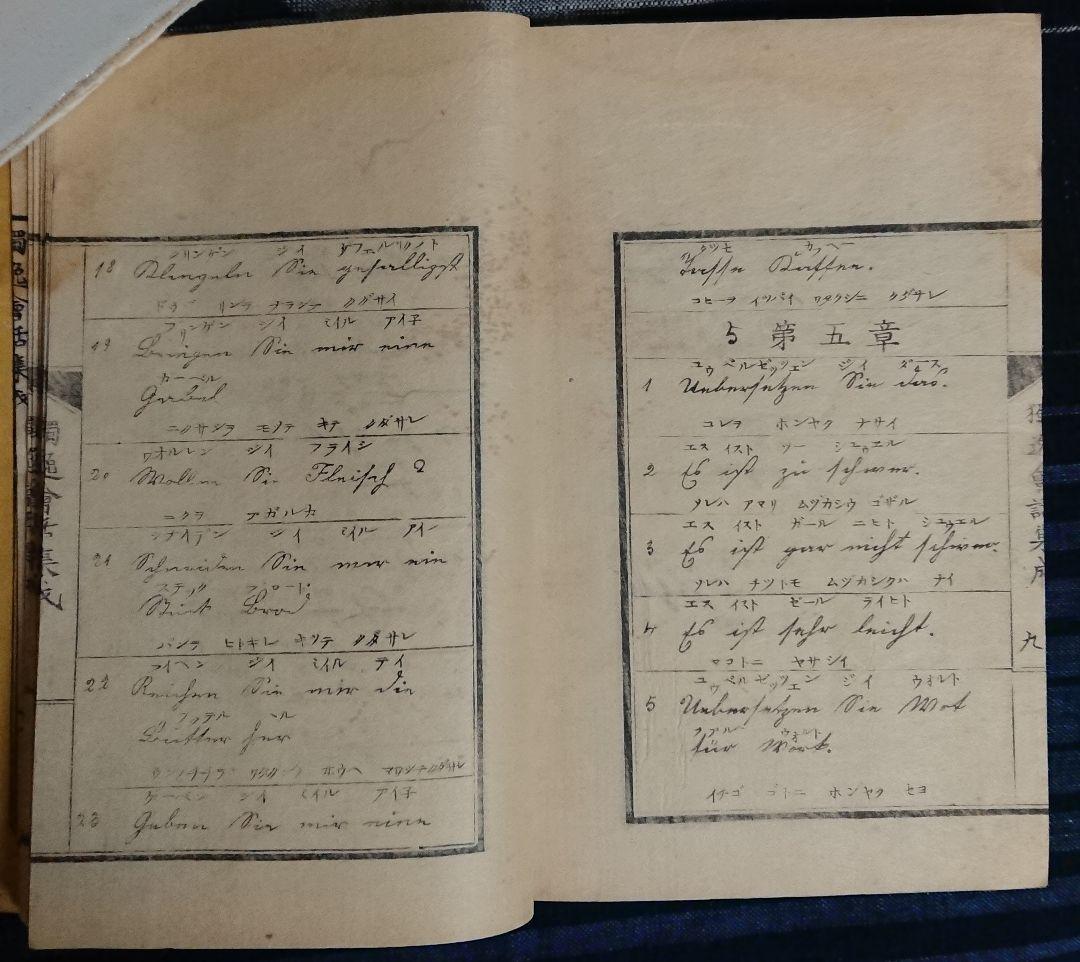 獨逸會話集成
18
Klingeln Sie gefälligst
フリンゲン ジイ ミイル アイ子
19 Bringen Sie mir eine
ガーベル
Gabel
ニクサシヲ モツテ キテ クダサレ
ウオルレン ジイ フライシ
20 Wollen Sie Fleisch ?
ニクヲ アガルカ
シナイデン ジイ ミイル アイン
21 Schneiden Sie mir ein
ステック ブロード
Stück Brod
パンヲ ヒトキレ キリテ クダサレ
ライヘン ジイ ミイル デイ
22 Reichen Sie mir die
ブッテル ヘル
Butter her
ゲーベン ジイ ミイル アイ子
23 Geben Sie mir eine
タツセ カフヘー
Tasse Kaffee.
コヒーヲ イツパイ ワタクシニ クダサレ
5 第五章
ユウベルゼッツェン ジイ ダース
1 Uebersetzen Sie das.
コレヲ ホンヤク ナサイ
エス イスト ツー シュウエル
2 Es ist zu schwer.
ソレハ アマリ ムヅカシウ ゴザル
エス イスト ガール ニヒト シュウエル
3 Es ist gar nicht schwer.
ソレハ チツトモ ムヅカシクハ ナイ
エス イスト ゼール ライヒト
4 Es ist sehr leicht.
マコトニ ヤサシイ
ユウベルゼッツェン ジイ ウオルト
5 Uebersetzen Sie Wort
フアル ウオルト
für Wort.
イチゴ ゴトニ ホンヤク セヨ
九